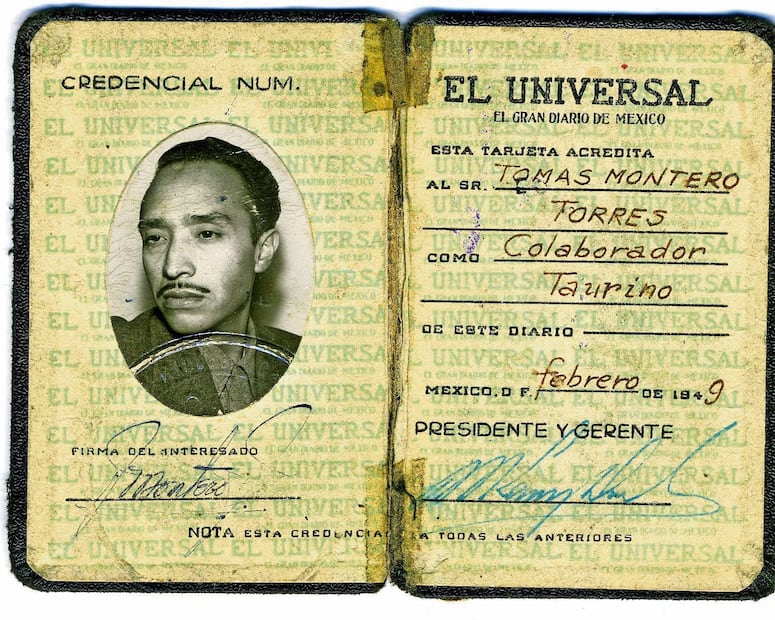 CREDENCIAL NUM.
FIRMA DEL INTERESADO
Montero
NOTA ESTA CREDENCIA A TODAS LAS ANTERIORES
EL UNIVERSAL
EL GRAN DIARIO DE MEXICO
ESTA TARJETA ACREDITA
AL SR. TOMAS MONTERO
TORRES
COMO Colaborador
Taurino
DE ESTE DIARIO
MEXICO, D F. febrero DE 1949
PRESIDENTE Y GERENTE